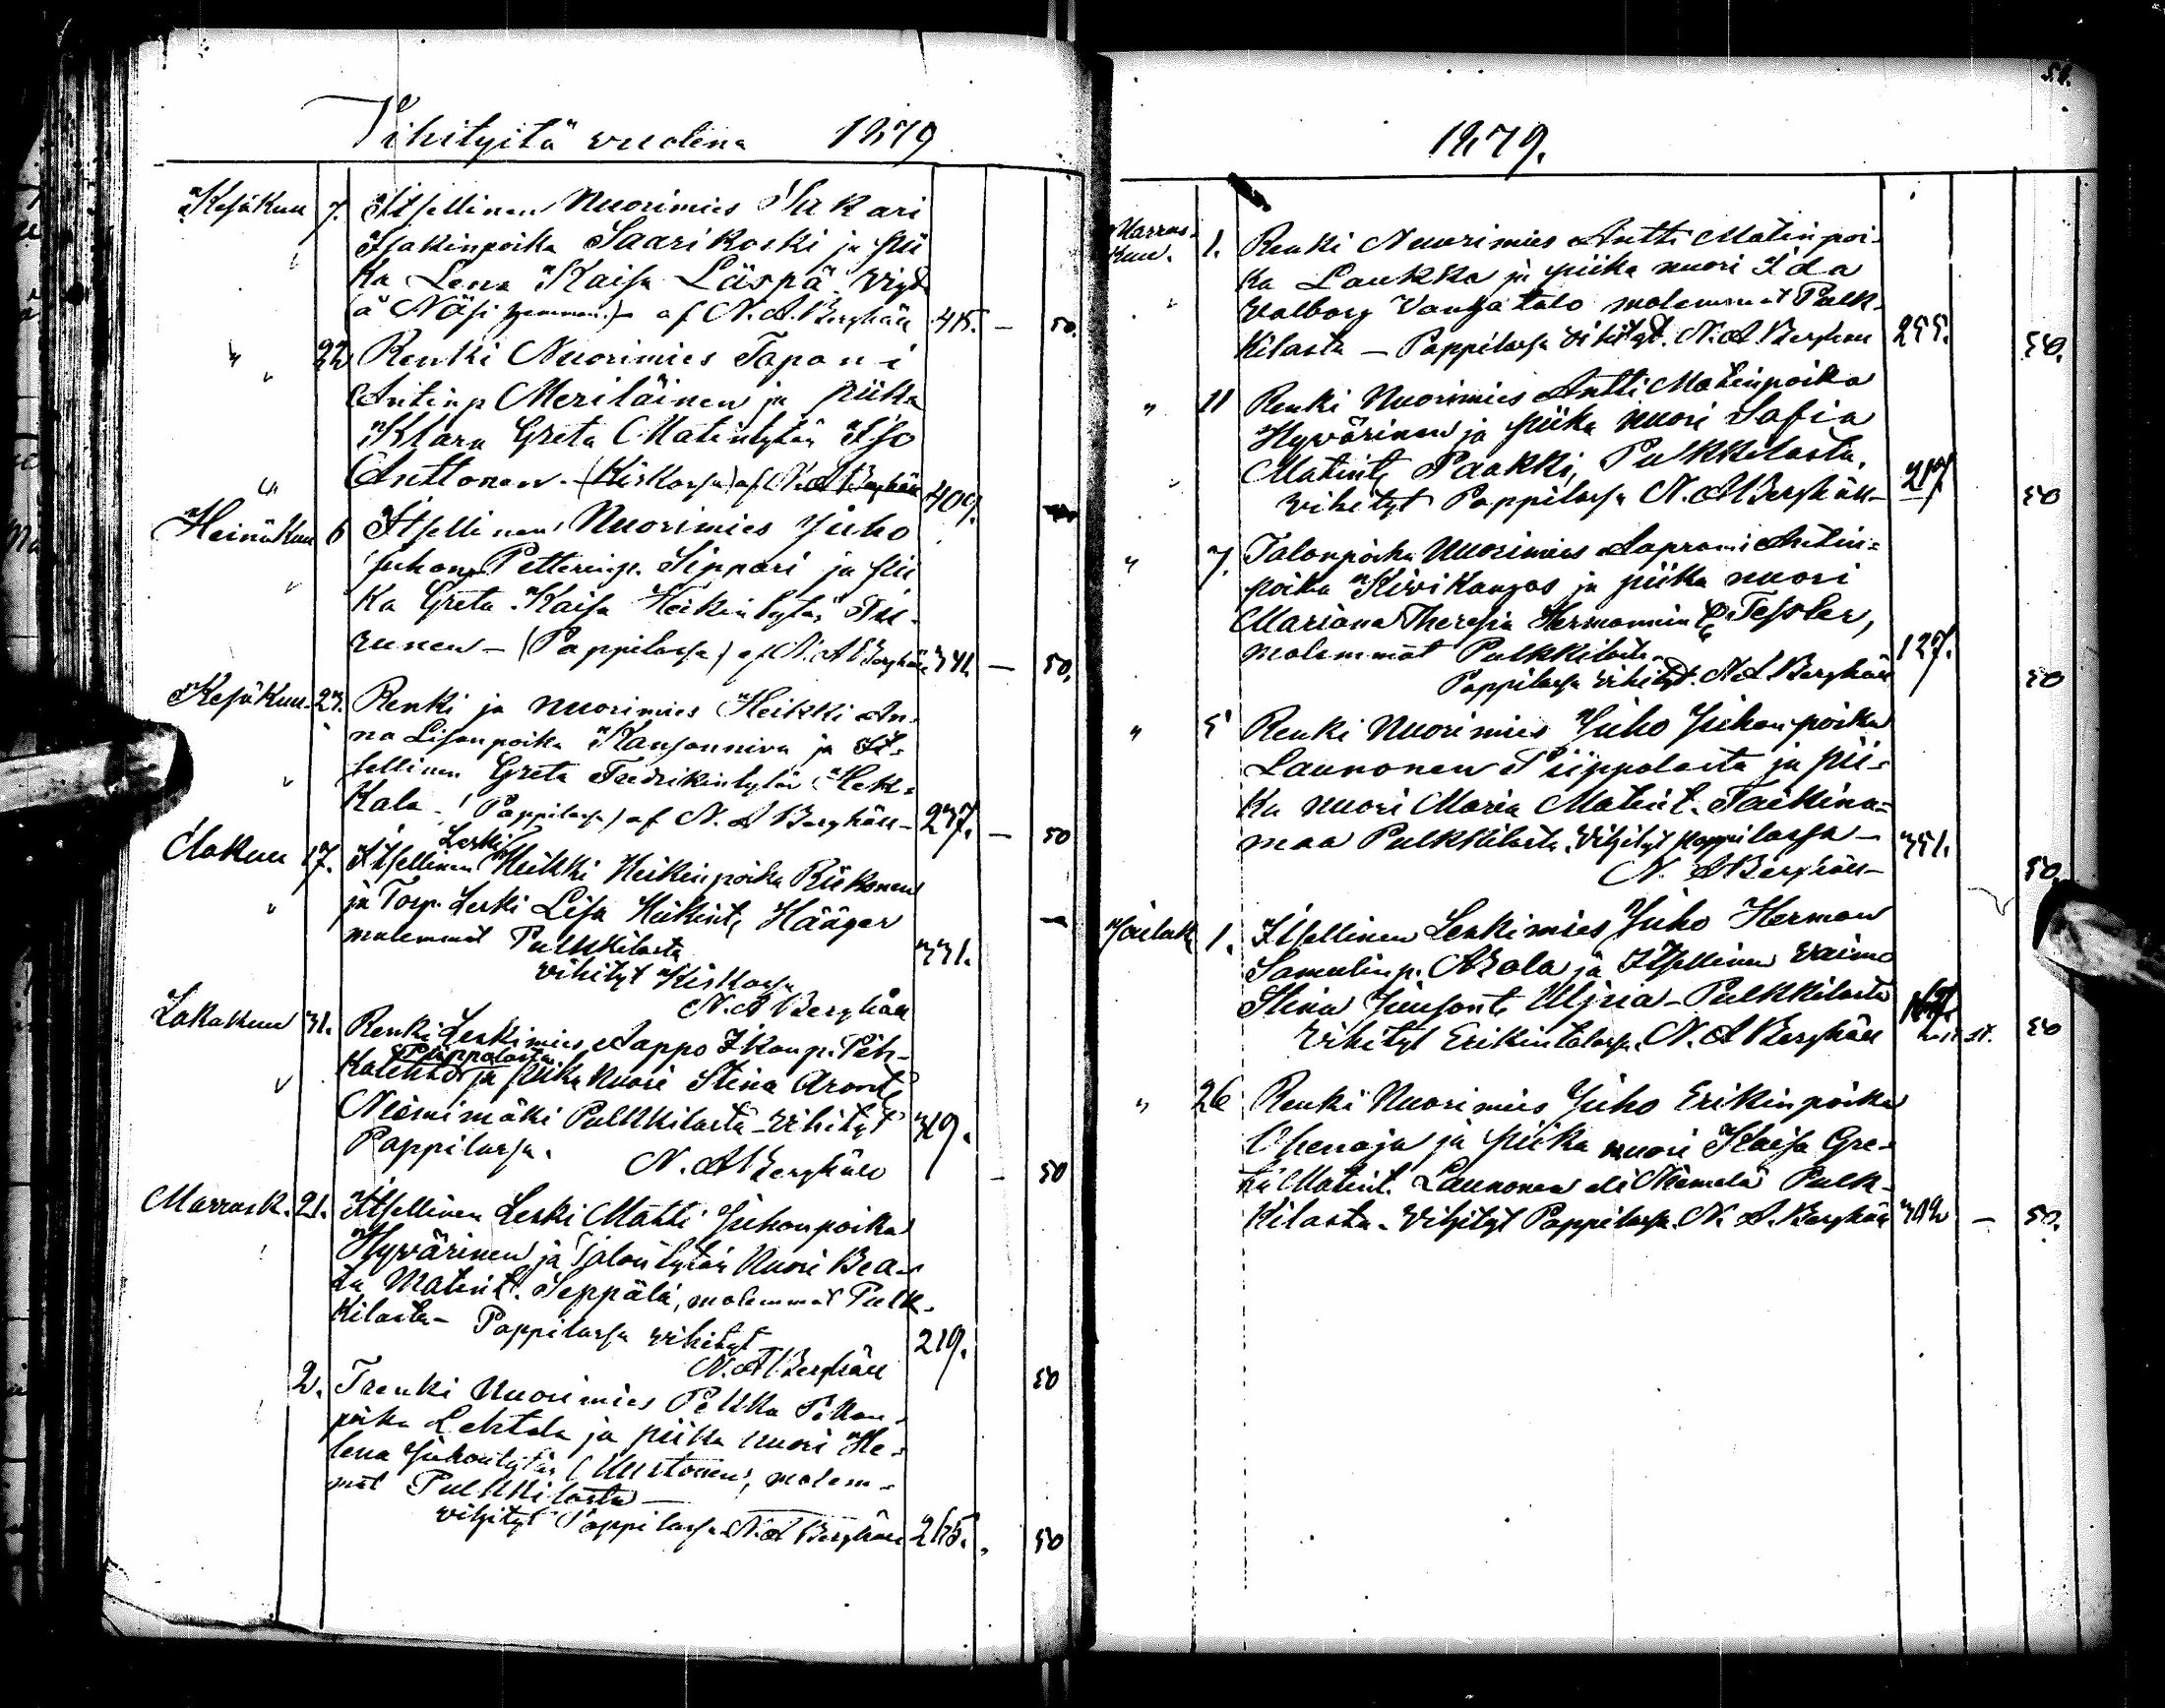 Vihityitä vuotena 1879
Kesäkuu 7. Itsellinen Nuorimies Sakari
Isakinpoika Saarikoski ja pii
ka Lena Kaisa Läspä. Vigda
(ä Näsi hemman.) - af N. A. Berghäll 415. — 50.
" 22 Renki Nuorimies Tapani
Antinp Meriläinen ja piika
Klara Greta Matintytär Iso
Anttonen. (Kirkossa) af N. A. Berghäll 409.
Heinäkuu 6 Itsellinen Nuorimies Juho
Juhonp Petterinp. Sippari ja pii
ka Greta Kaisa Heikintytär Tii-
runen - (Pappilassa) af N. A. Berghäll 341. — 50.
Kesäkuu 23. Renki ja nuorimies Heikki An-
na Lisanpoika Kansanniva ja It-
sellinen Greta Fredrikintytär Hek-
kala - (Pappilassa) af N. A Berghäll - 237. — 50
Elokuu 17. Itsellinen Leski Heikki Heikinpoika Riikonen
ja Torp. Leski Lisa Heikint. Hääger
molemmat Pulkkilasta 331. —
vihityt Kirkossa
N. A Berghäll
Lokakuu 31. Renki Leskimies Aappo Ikonp. Pih-
Piippolasta
kalehto ja piika nuori Stina Aront.
Niemimäki Pulkkilasta - vihityt 319.
Pappilassa. N. A Berghäll — 50
Marrask. 21. Itsellinen Leski Matti Juhonpoika
Hyvärinen ja Talontytär Nuori Bea-
ta Matint. Seppälä, molemmat Pulk-
kilasta - Pappilassa vihityt 219.
N. A Berghäll 50
2. Trenki Nuorimies Pekka Pekan-
poika Lehtola ja piika nuori He-
lena Juhontytär Mustonen, molem-
mat Pulkkilasta —
vihityt Pappilassa N. A Berghäll 265. 50
51.
1879.
Marras-
kuu. 1. Renki Nuorimies Antti Matinpoi-
ka Laukka ja piika nuori Ida
Valborg Vanhatalo molemmat Pulk-
kilasta — Pappilassa vihityt. N. A Berghäll 255. 50.
" 11 Renki Nuorimies Antti Matinpoika
Hyvärinen ja piika nuori Sofia
Matint. Paakki, Pulkkilasta,
vihityt Pappilassa N. A Berghäll - 217 50
" 7. Talonpoika Nuorimies Aaprami Antin-
poika Kivikangas ja piika nuori
Mariana Theresia Hermannin t. Tessler,
molemmat Pulkkilasta. 127.
Pappilassa vihityt. N. A. Berghäll 50
" 5 Renki Nuorimies Juho Juhonpoika
Launonen Piippolasta ja pii-
ka nuori Maria Matint. Taikina-
maa Pulkkilasta. Vihityt pappilassa — 351.
N. A Berghäll - 50.
Jouluk. 1. Itsellinen Leskimies Juho Herman
Samulinp. Ahola ja Itsellinen vaimo
Stina Simsont. Uljua - Pulkkilasta
vihityt Erikintalossa. N. A Berghäll 50
" 26 Renki Nuorimies Juho Erikinpoika
Ohenoja ja piika nuori Kaisa Gre-
ta Matint. Launonen eli Niemelä Pulk-
kilasta - Vihityt Pappilassa. N. A. Berghäll 392 — 50.